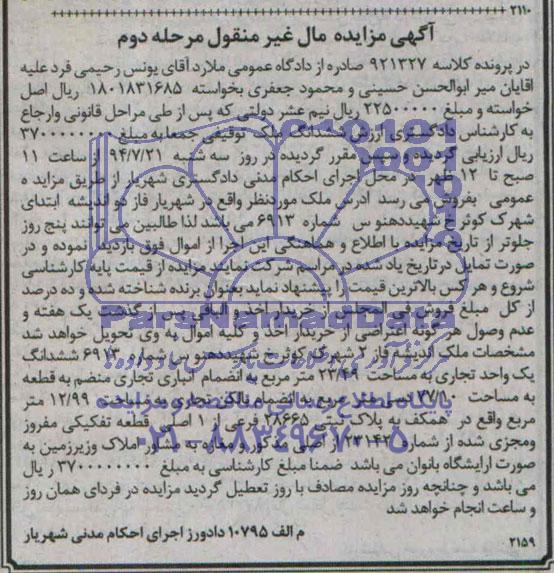 ۲۱۱۰
آگهی مزایده مال غیر منقول مرحله دوم
در پرونده کلاسه ۹۲۱۳۲۷ صادره از دادگاه عمومی ملارد آقای یونس رحیمی فرد علیه
اقایان میر ابوالحسن حسینی و محمود جعفری بخواسته ۱۸۰۱۸۳۱۶۸۵ ریال اصل
خواسته و مبلغ ۲۲۵۰۰۰۰۰ ریال نیم عشر دولتی که پس از طی مراحل قانونی وارجاع
به کارشناس دادگستری ارزش ششدانگ ملک توقیفی جمعا به مبلغ ۳۷۰۰۰۰۰۰۰۰
ریال ارزیابی گردیده و سپس مقرر گردیده در روز سه شنبه ۹۴/۷/۲۱ از ساعت ۱۱
صبح تا ۱۲ ظهر در محل اجرای احکام مدنی دادگستری شهریار از طریق مزایده
عمومی بفروش می رسد آدرس ملک موردنظر واقع در شهریار فاز دو اندیشه ابتدای
شهرک کوثر خ شهیددهنو س شماره ۶۹۱۳ می باشد لذا طالبین می توانند پنج روز
جلوتر از تاریخ مزایده با اطلاع و هماهنگی این اجرا از اموال فوق بازدید نموده و در
صورت تمایل در تاریخ یاد شده در مراسم شرکت نمایند مزایده از قیمت پایه کارشناسی
شروع و هر کس بالاترین قیمت را پیشنهاد نماید بعنوان برنده شناخته شده و ده درصد
از کل مبلغ فروش فی المجلس از خریدار اخذ و الباقی پس از گذشت یک هفته و
عدم وصول هر گونه اعتراضی از خریدار اخذ و کلیه اموال به وی تحویل خواهد شد
مشخصات ملک اندیشه فاز ۲ شهرک کوثر خ شهیددهنو س شماره ۶۹۱۳ ششدانگ
یک واحد تجاری به مساحت ۲۳/۴۹ متر مربع به انضمام انباری تجاری منضم به قطعه
به مساحت ۲۷/۱۰ متر مربع به انضمام بالکن تجاری به مساحت ۱۲/۹۹ متر
مربع واقع در همکف به پلاک ثبتی ۲۸۶۶۵ فرعی از ۱ اصلی قطعه تفکیکی مفروز
ومجزی شده از شماره ۲۳۱۴۲ از اصلی مذکور ومغازه به منشور املاک وزیرزمین به
صورت ارایشگاه بانوان می باشد ضمنا مبلغ کارشناسی به مبلغ ۳۷۰۰۰۰۰۰۰۰ ریال
می باشد و چنانچه روز مزایده مصادف با روز تعطیل گردید مزایده در فردای همان روز
و ساعت انجام خواهد شد
م الف ۱۰۷۹۵ دادورز اجرای احکام مدنی شهریار
۲۱۵۹
ParsNamadData
پایگاه اطلاع رسانی مناقصه و مزایده
۰۲۱-۸۸۳۴۹۶۷۰-۵